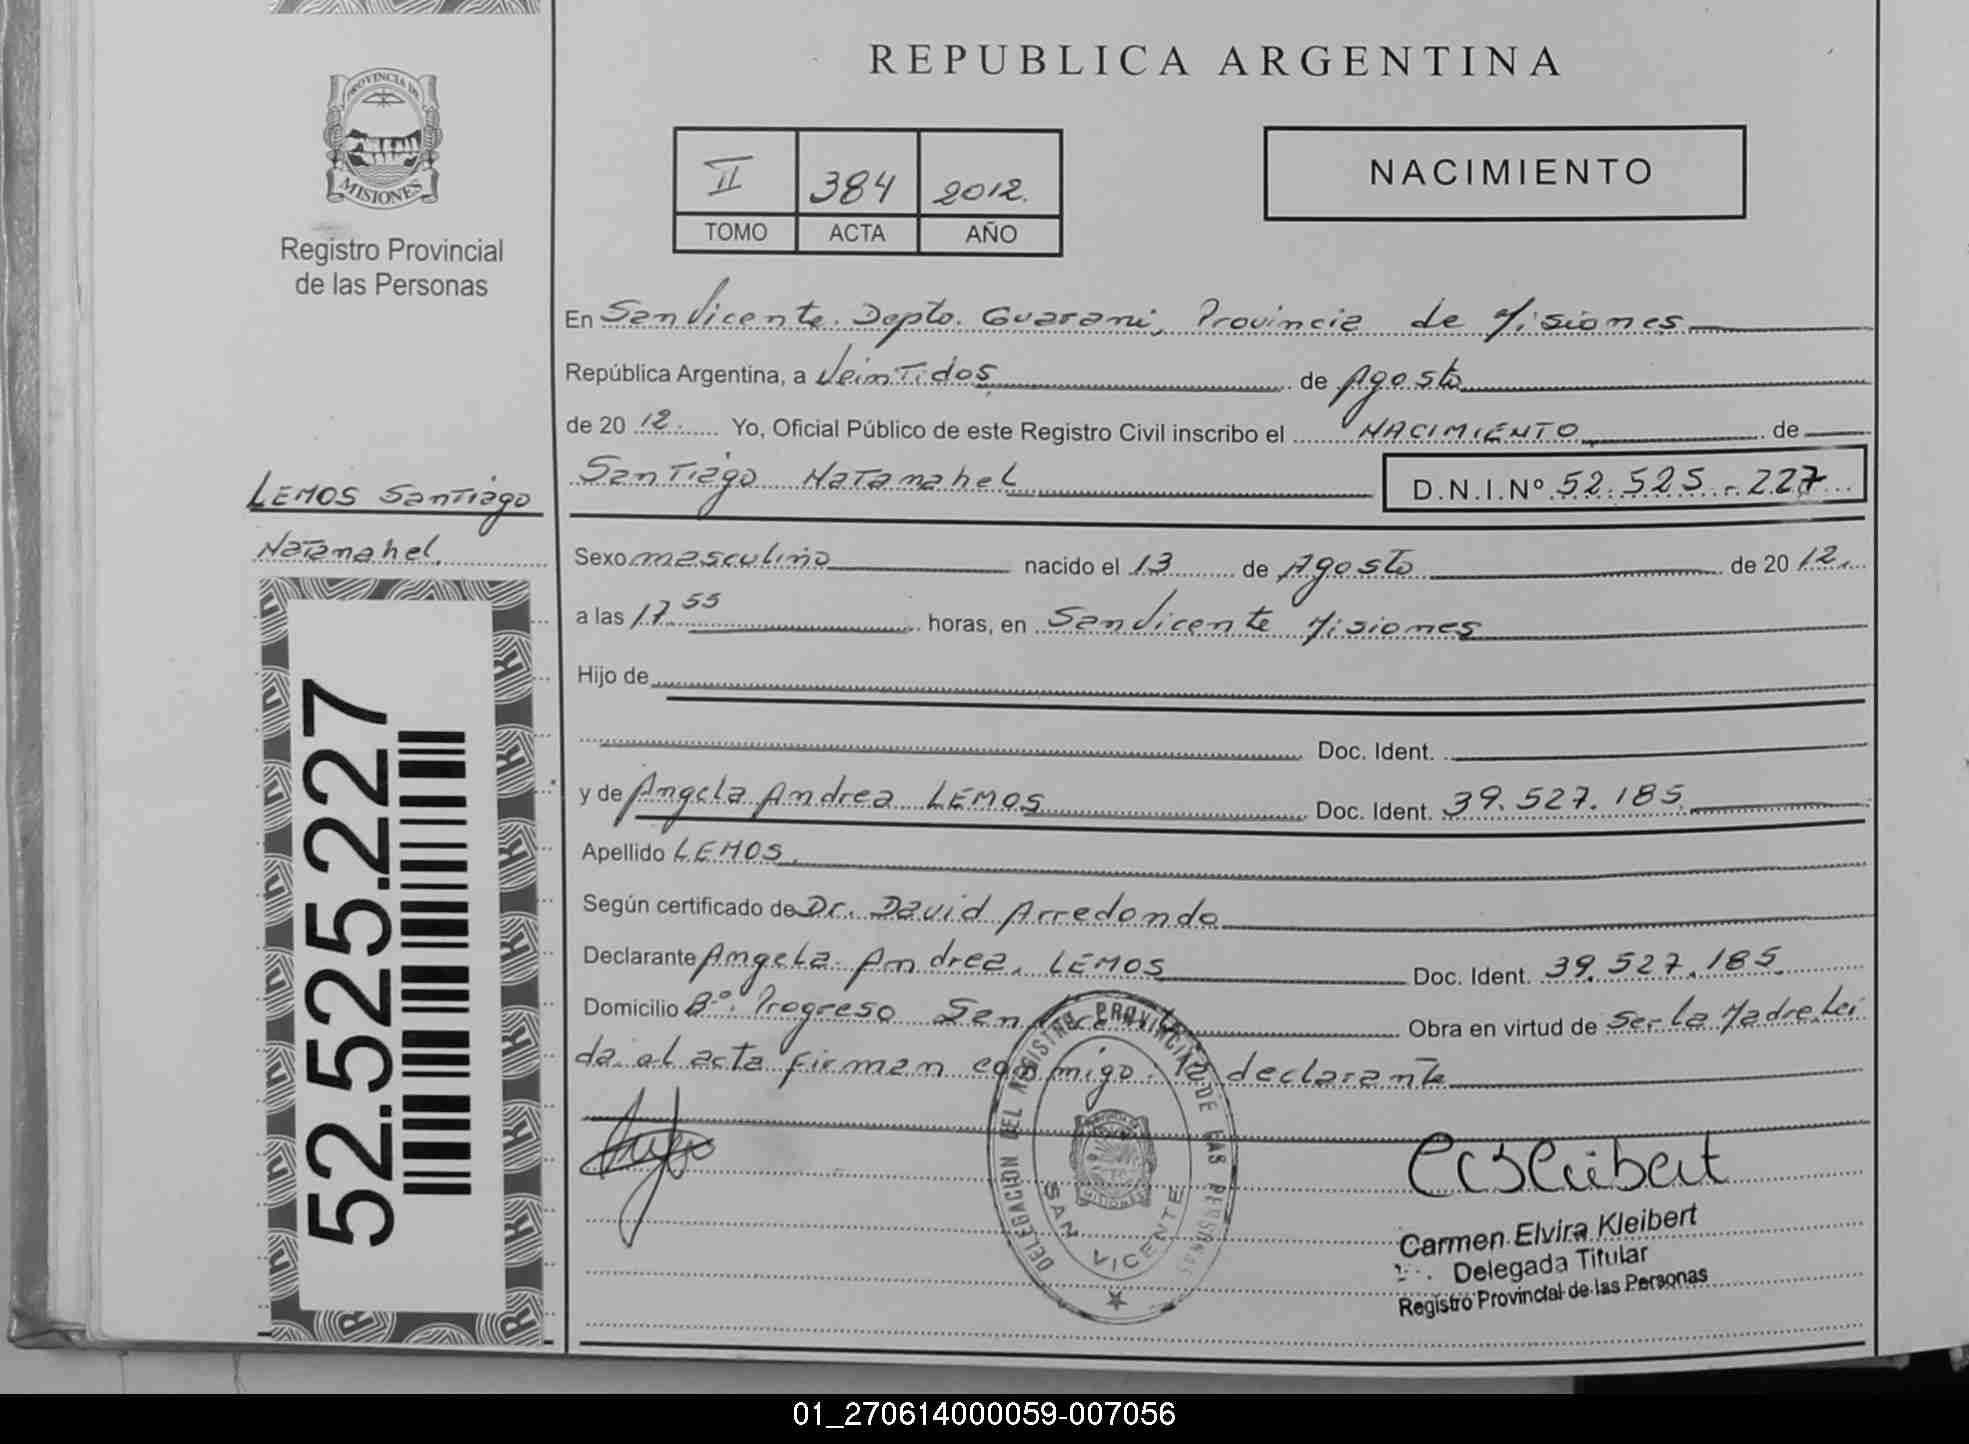 REPUBLICA ARGENTINA
PROVINCIA DE
MISIONES
Registro Provincial
de las Personas
II 384 2012.
TOMO ACTA AÑO
NACIMIENTO
En San Vicente. Depto. Guarani, Provincia de Misiones
República Argentina, a Veintidos de Agosto
de 20 12. Yo, Oficial Público de este Registro Civil inscribo el NACIMIENTO de
Santiago Natanahel D.N.I.Nº 52.525.-227
LEMOS Santiago
Natanahel.
Sexo masculino nacido el 13 de Agosto de 20 12.
a las 17 55 horas, en San Vicente Misiones
Hijo de
Doc. Ident.
y de Angela Andrea LEMOS Doc. Ident. 39.527.185
Apellido LEMOS.
Según certificado de Dr. David Arredondo
Declarante Angela Andrea. LEMOS Doc. Ident. 39.527.185
Domicilio Bº. Progreso San Vicente Obra en virtud de Ser la Madre. Lei
da el acta firman conmigo. la declarante
52.525.227
DELEGACION DEL REGISTRO PROVINCIAL DE LAS PERSONAS
MISIONES
SAN VICENTE
CEKleibert
Carmen Elvira Kleibert
Delegada Titular
Registro Provincial de las Personas
01_270614000059-007056